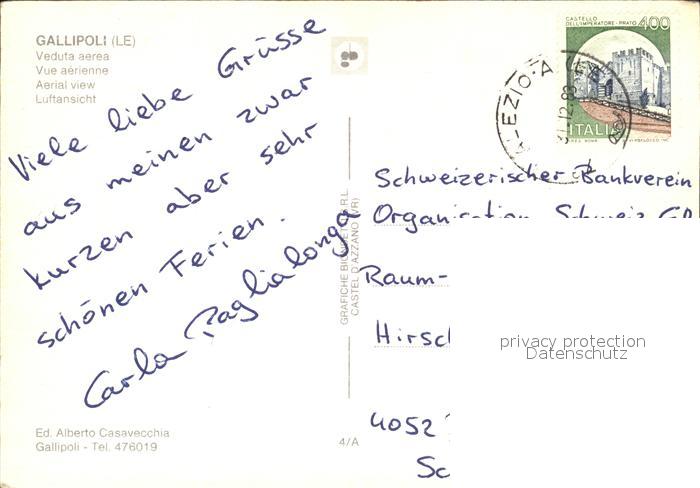 GALLIPOLI (LE)
Veduta aerea
Vue aérienne
Aerial view
Luftansicht
Viele liebe Grüsse
aus meinen zwar
kurzen aber sehr
schönen Ferien.
Carla Paglialonga
Ed. Alberto Casavecchia
Gallipoli - Tel. 476019
4/A
CASTEL D'AZZANO (VR)
CASTELLO
DELL'IMPERATORE - PRATO
400
ITALIA
Schweizerischer Bankverein
Organisation Schweiz
Raum-
Hirsch
4052
Sc
privacy protection
Datenschutz